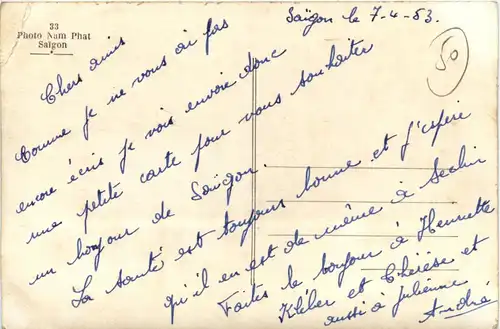 33
Photo Nam Phat
Saïgon
Saïgon le 7-4-53.
50
Chers amis
Comme je ne vous ai pas
encore écris je vais envoie donc
une petite carte pour vous souhaiter
un bonjour de Saïgon.
La santé est toujours bonne et j'espère
qu'il en est de même à Seclin
Faites le bonjour à Henriette
Kléber et Thérèse et
aussi à Julienne
André